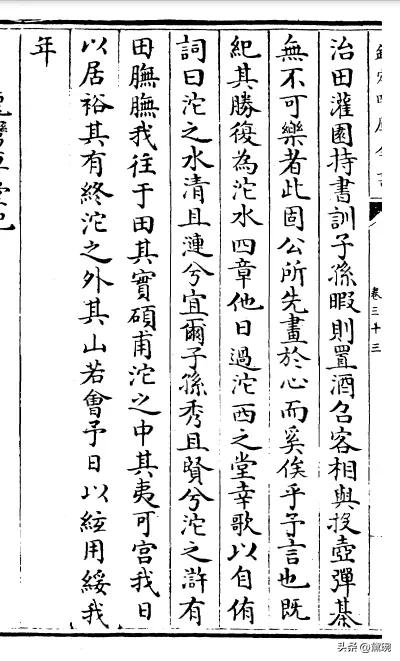 欽定四庫全書
卷三十三
治田灌園持書訓子孫暇則置酒召客相與投壺彈棊
無不可樂者此固公所先畫於心而奚俟乎予言也既
紀其勝復為沱水四章他日過沱西之堂幸歌以自侑
詞曰沱之水清且漣兮宜爾子孫秀且賢兮沱之滸有
田膴膴我往于田其實碩甫沱之中其夷可宮我日
以居裕其有終沱之外其山若會予日以絃用綏我
年
头条